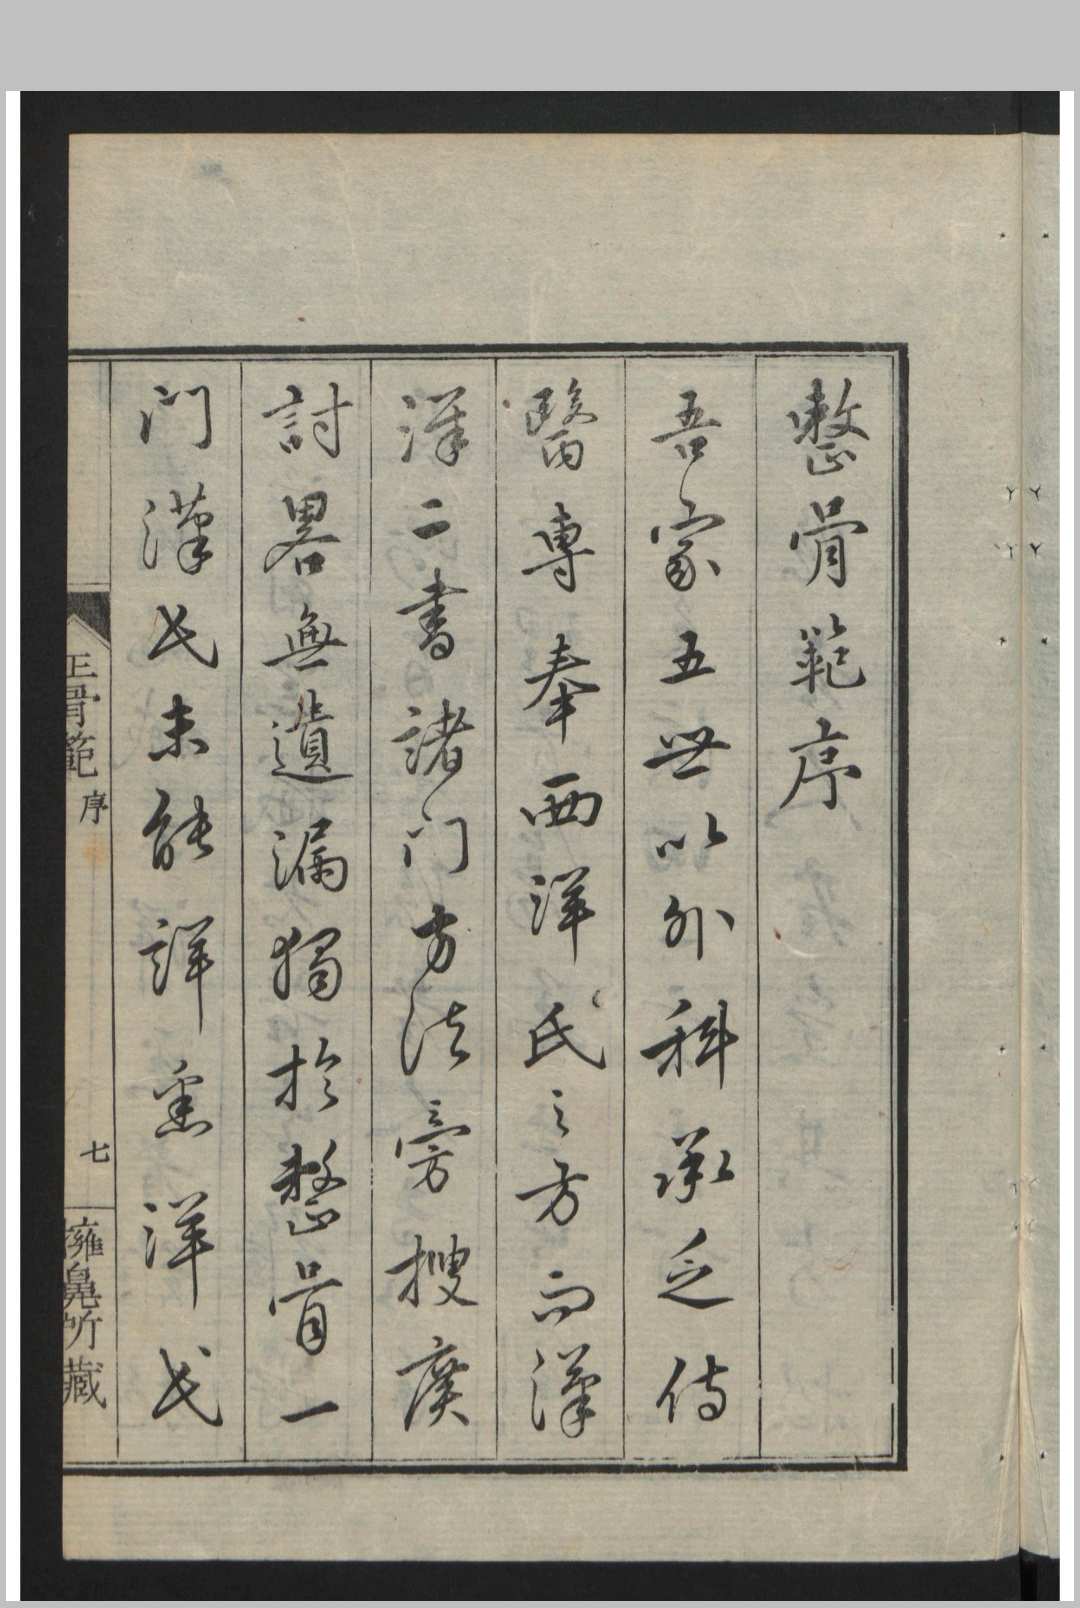 整骨範序
吾家五世以外科承乏侍
醫專奉西洋氏之方而漢
洋二書諸门方法旁搜廣
討畧無遺漏獨於整骨一
门漢氏未能詳悉洋氏
正骨範 序
七
擁 所藏